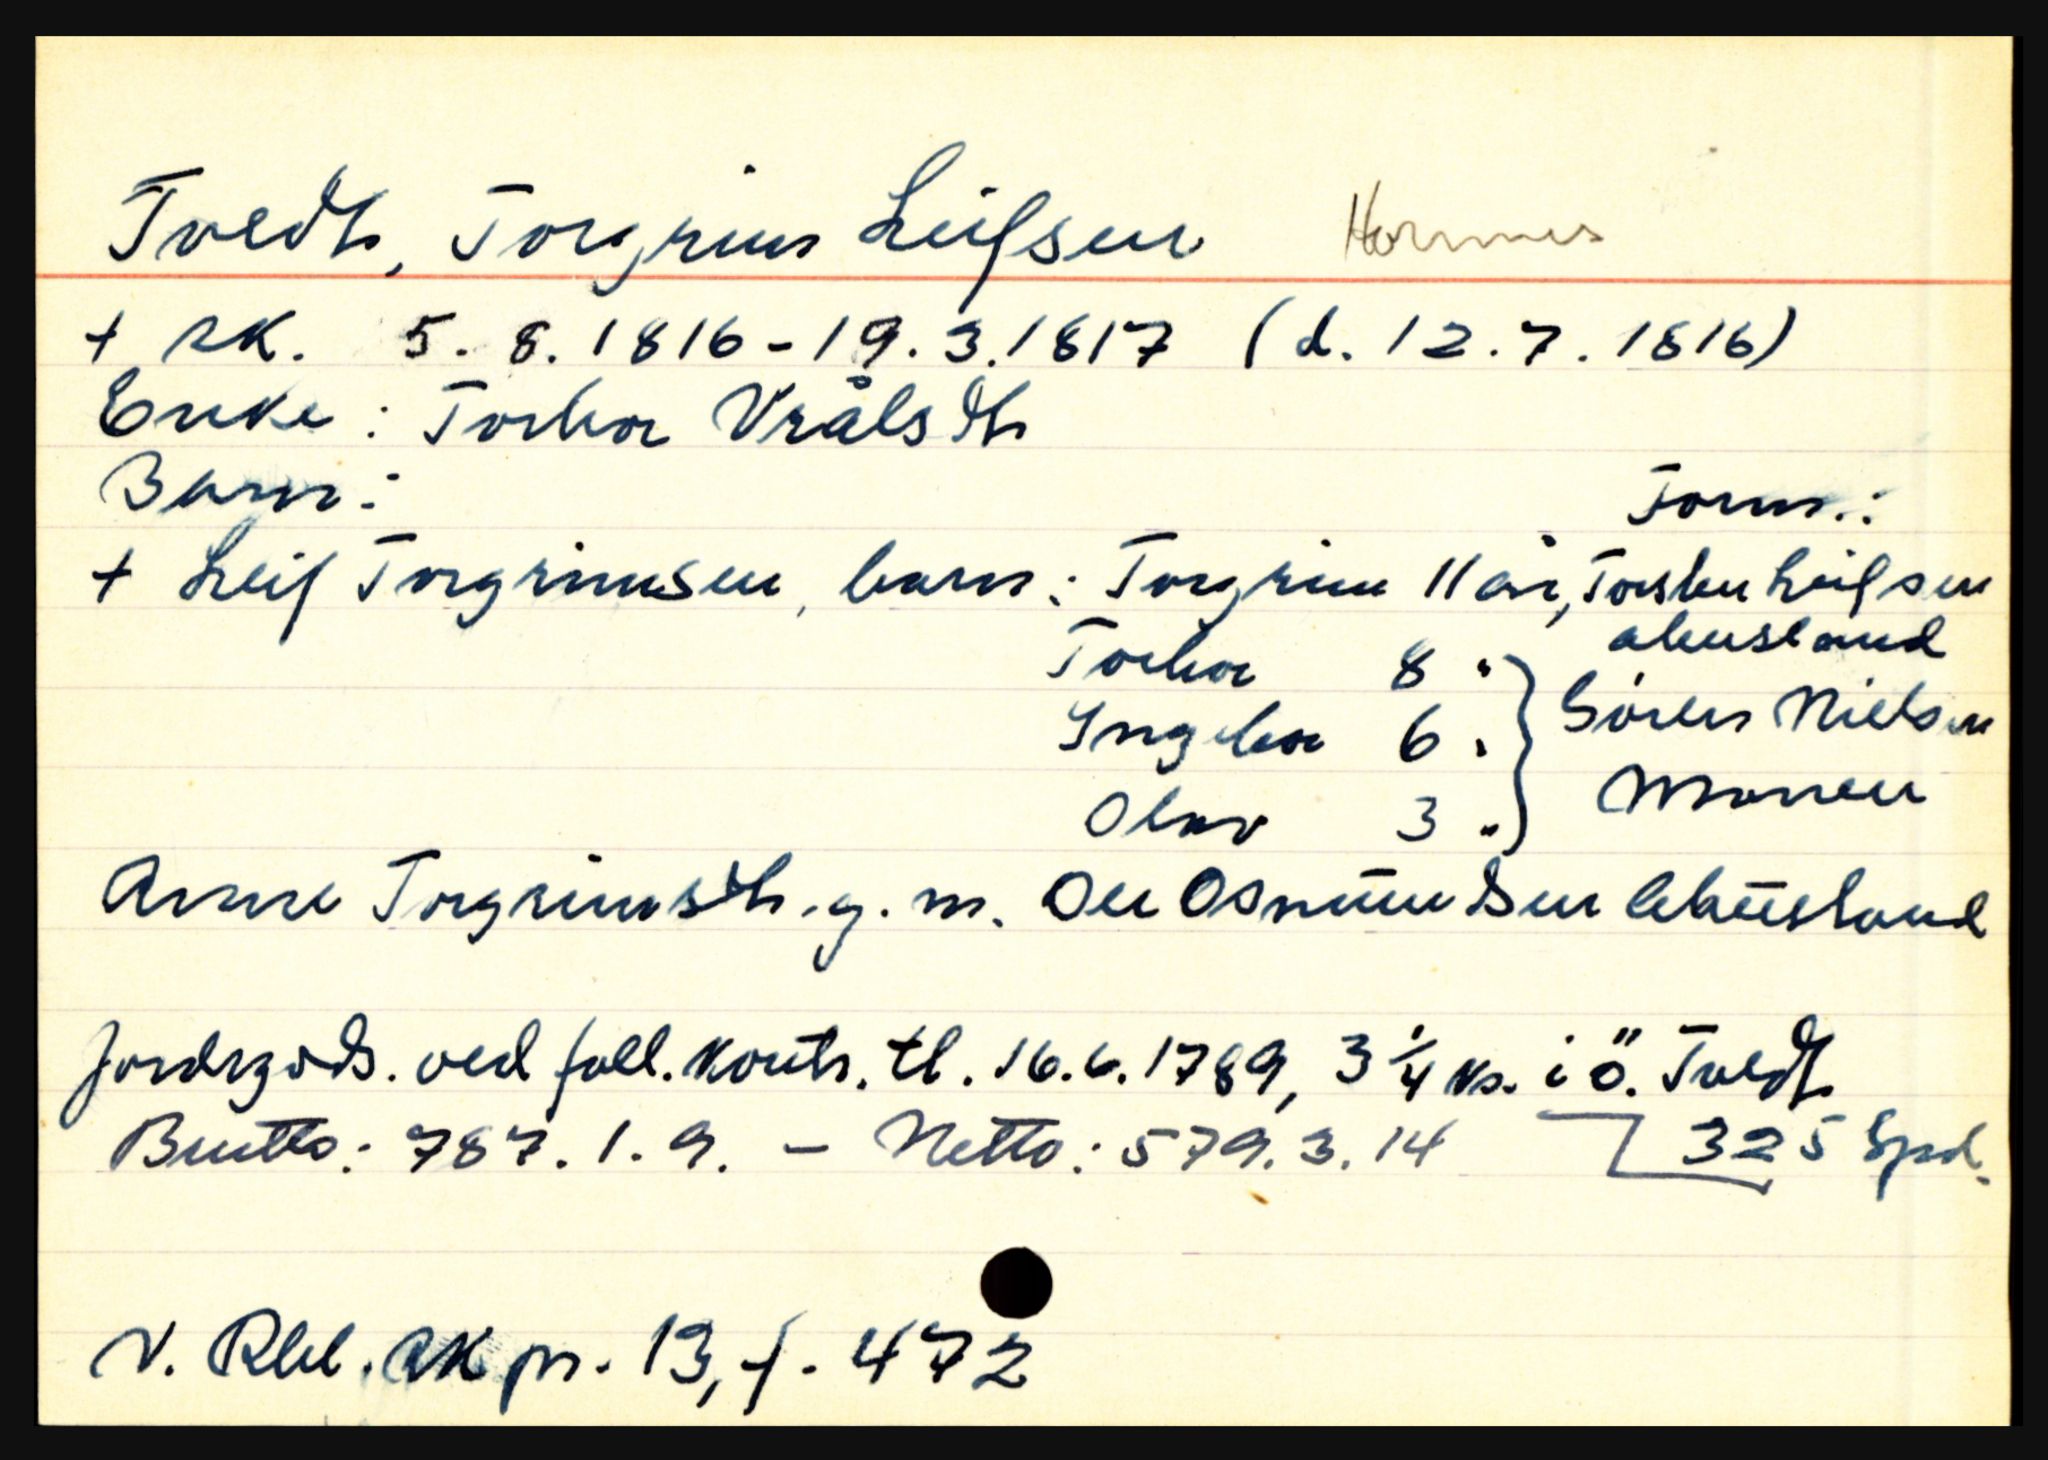 Tvedt, Torgrim Leifsen Hornnes
+ sk. 5.8.1816-19.3.1817 (d. 12.7.1816)
Enke: Torbor Vrålsdt
Barn: Form.:
+ Leif Torgrimsen, barn: Torgrim 11 år, Torsten Leifsen
Torbor 8 " Abusland
Ingebor 6 " } Sören Nielsen
Olav 3 " Monen
Anne Torgrimsdt. g. m. Ole Osmundsen Abusland
Jordegods. ved foll. kontr. tl. 16.6.1789, 3 1/4 ks. i ö. Tvedt
Brutto: 787.1.9. – Netto: 579.3.14 325 Spd.
N. Rbd. sk pr. 13, f. 472